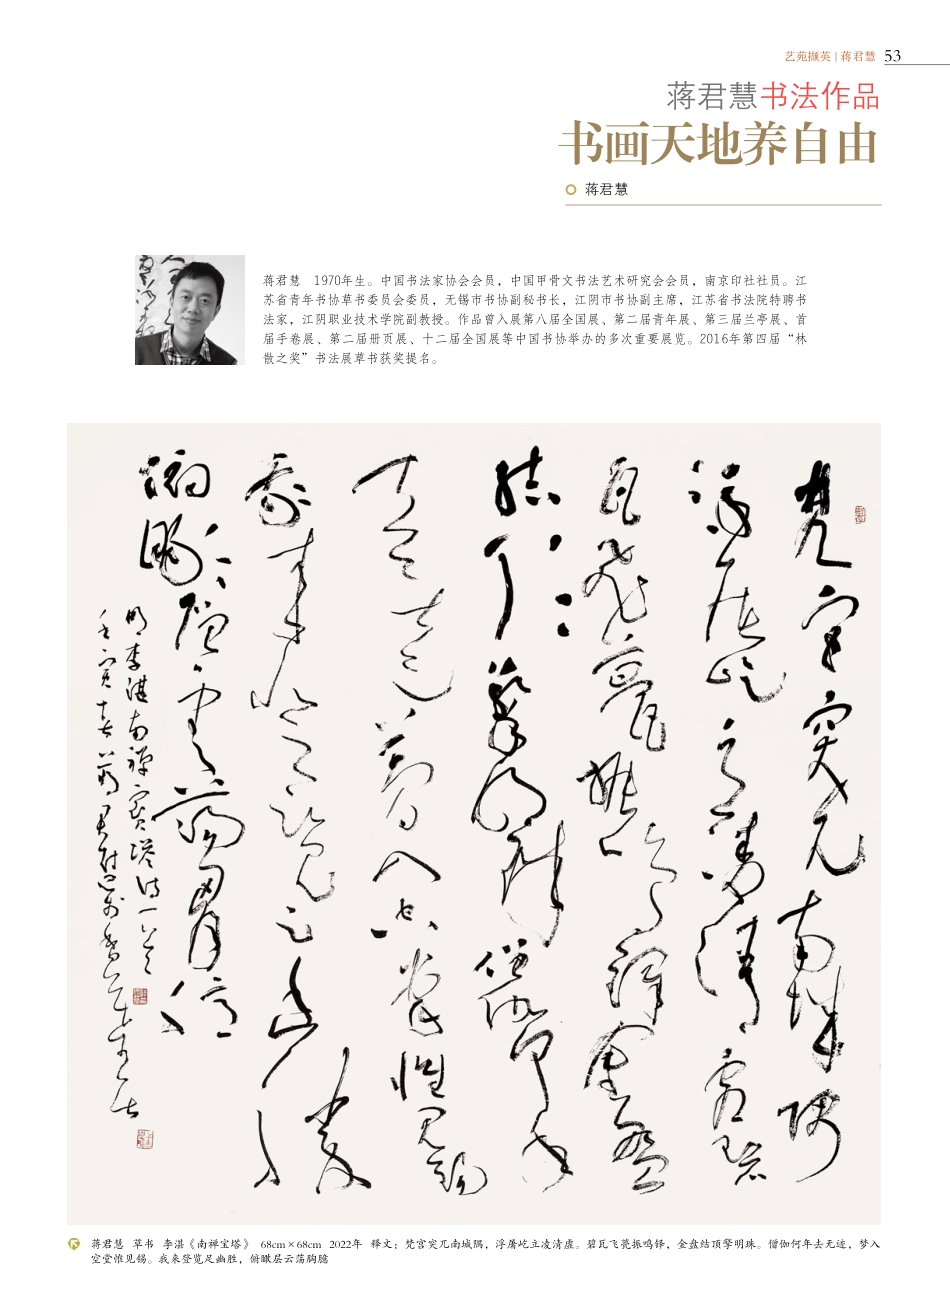 艺苑撷英 | 蒋君慧 53
蒋君慧书法作品
书画天地养自由
蒋君慧
蒋君慧 1970年生。中国书法家协会会员，中国甲骨文书法艺术研究会会员，南京印社社员。江
苏省青年书协草书委员会委员，无锡市书协副秘书长，江阴市书协副主席，江苏省书法院特聘书
法家，江阴职业技术学院副教授。作品曾入展第八届全国展、第二届青年展、第三届兰亭展、首
届手卷展、第二届册页展、十二届全国展等中国书协举办的多次重要展览。2016年第四届“林
散之奖”书法展草书获奖提名。
梵宫突兀南城隅
浮屠屹立凌清虚碧
瓦飞甍振鸣铎金盘
结顶擎明珠僧伽何年
去无迹梦入空堂惟见锡
我来登览足幽胜
俯瞰层云荡胸臆
明李湛南禅宝塔诗一首
蒋君慧 草书 李湛《南禅宝塔》 68cm×68cm 2022年 释文：梵宫突兀南城隅，浮屠屹立凌清虚。碧瓦飞甍振鸣铎，金盘结顶擎明珠。僧伽何年去无迹，梦入
空堂惟见锡。我来登览足幽胜，俯瞰层云荡胸臆